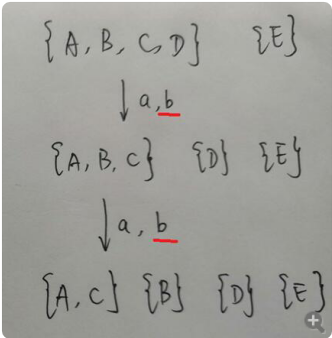 {A, B, C, D} {E}
↓ a, b
{A, B, C} {D} {E}
↓ a, b
{A, C} {B} {D} {E}